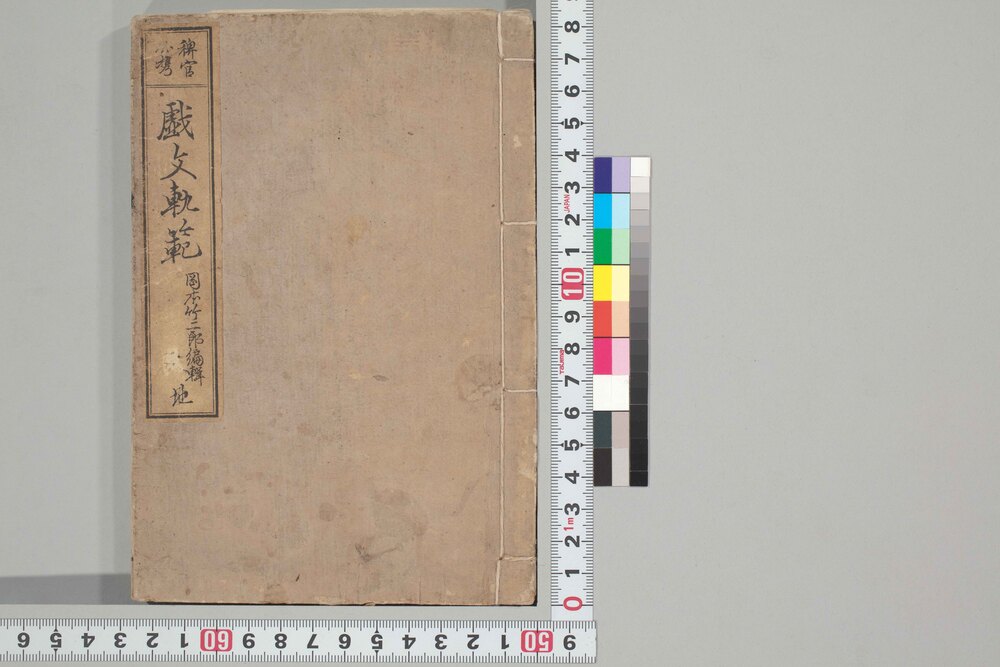 稗官
小㩦
戯文軌範
岡本竹二郎編輯
地
8
7
6
5
4
3
JAPAN
2
1
10
9
8
7
6
5
4
3
1m
2
1
0
6 5 4 3 2 1 60 9 8 7 6 5 4 3 2 1 50 9